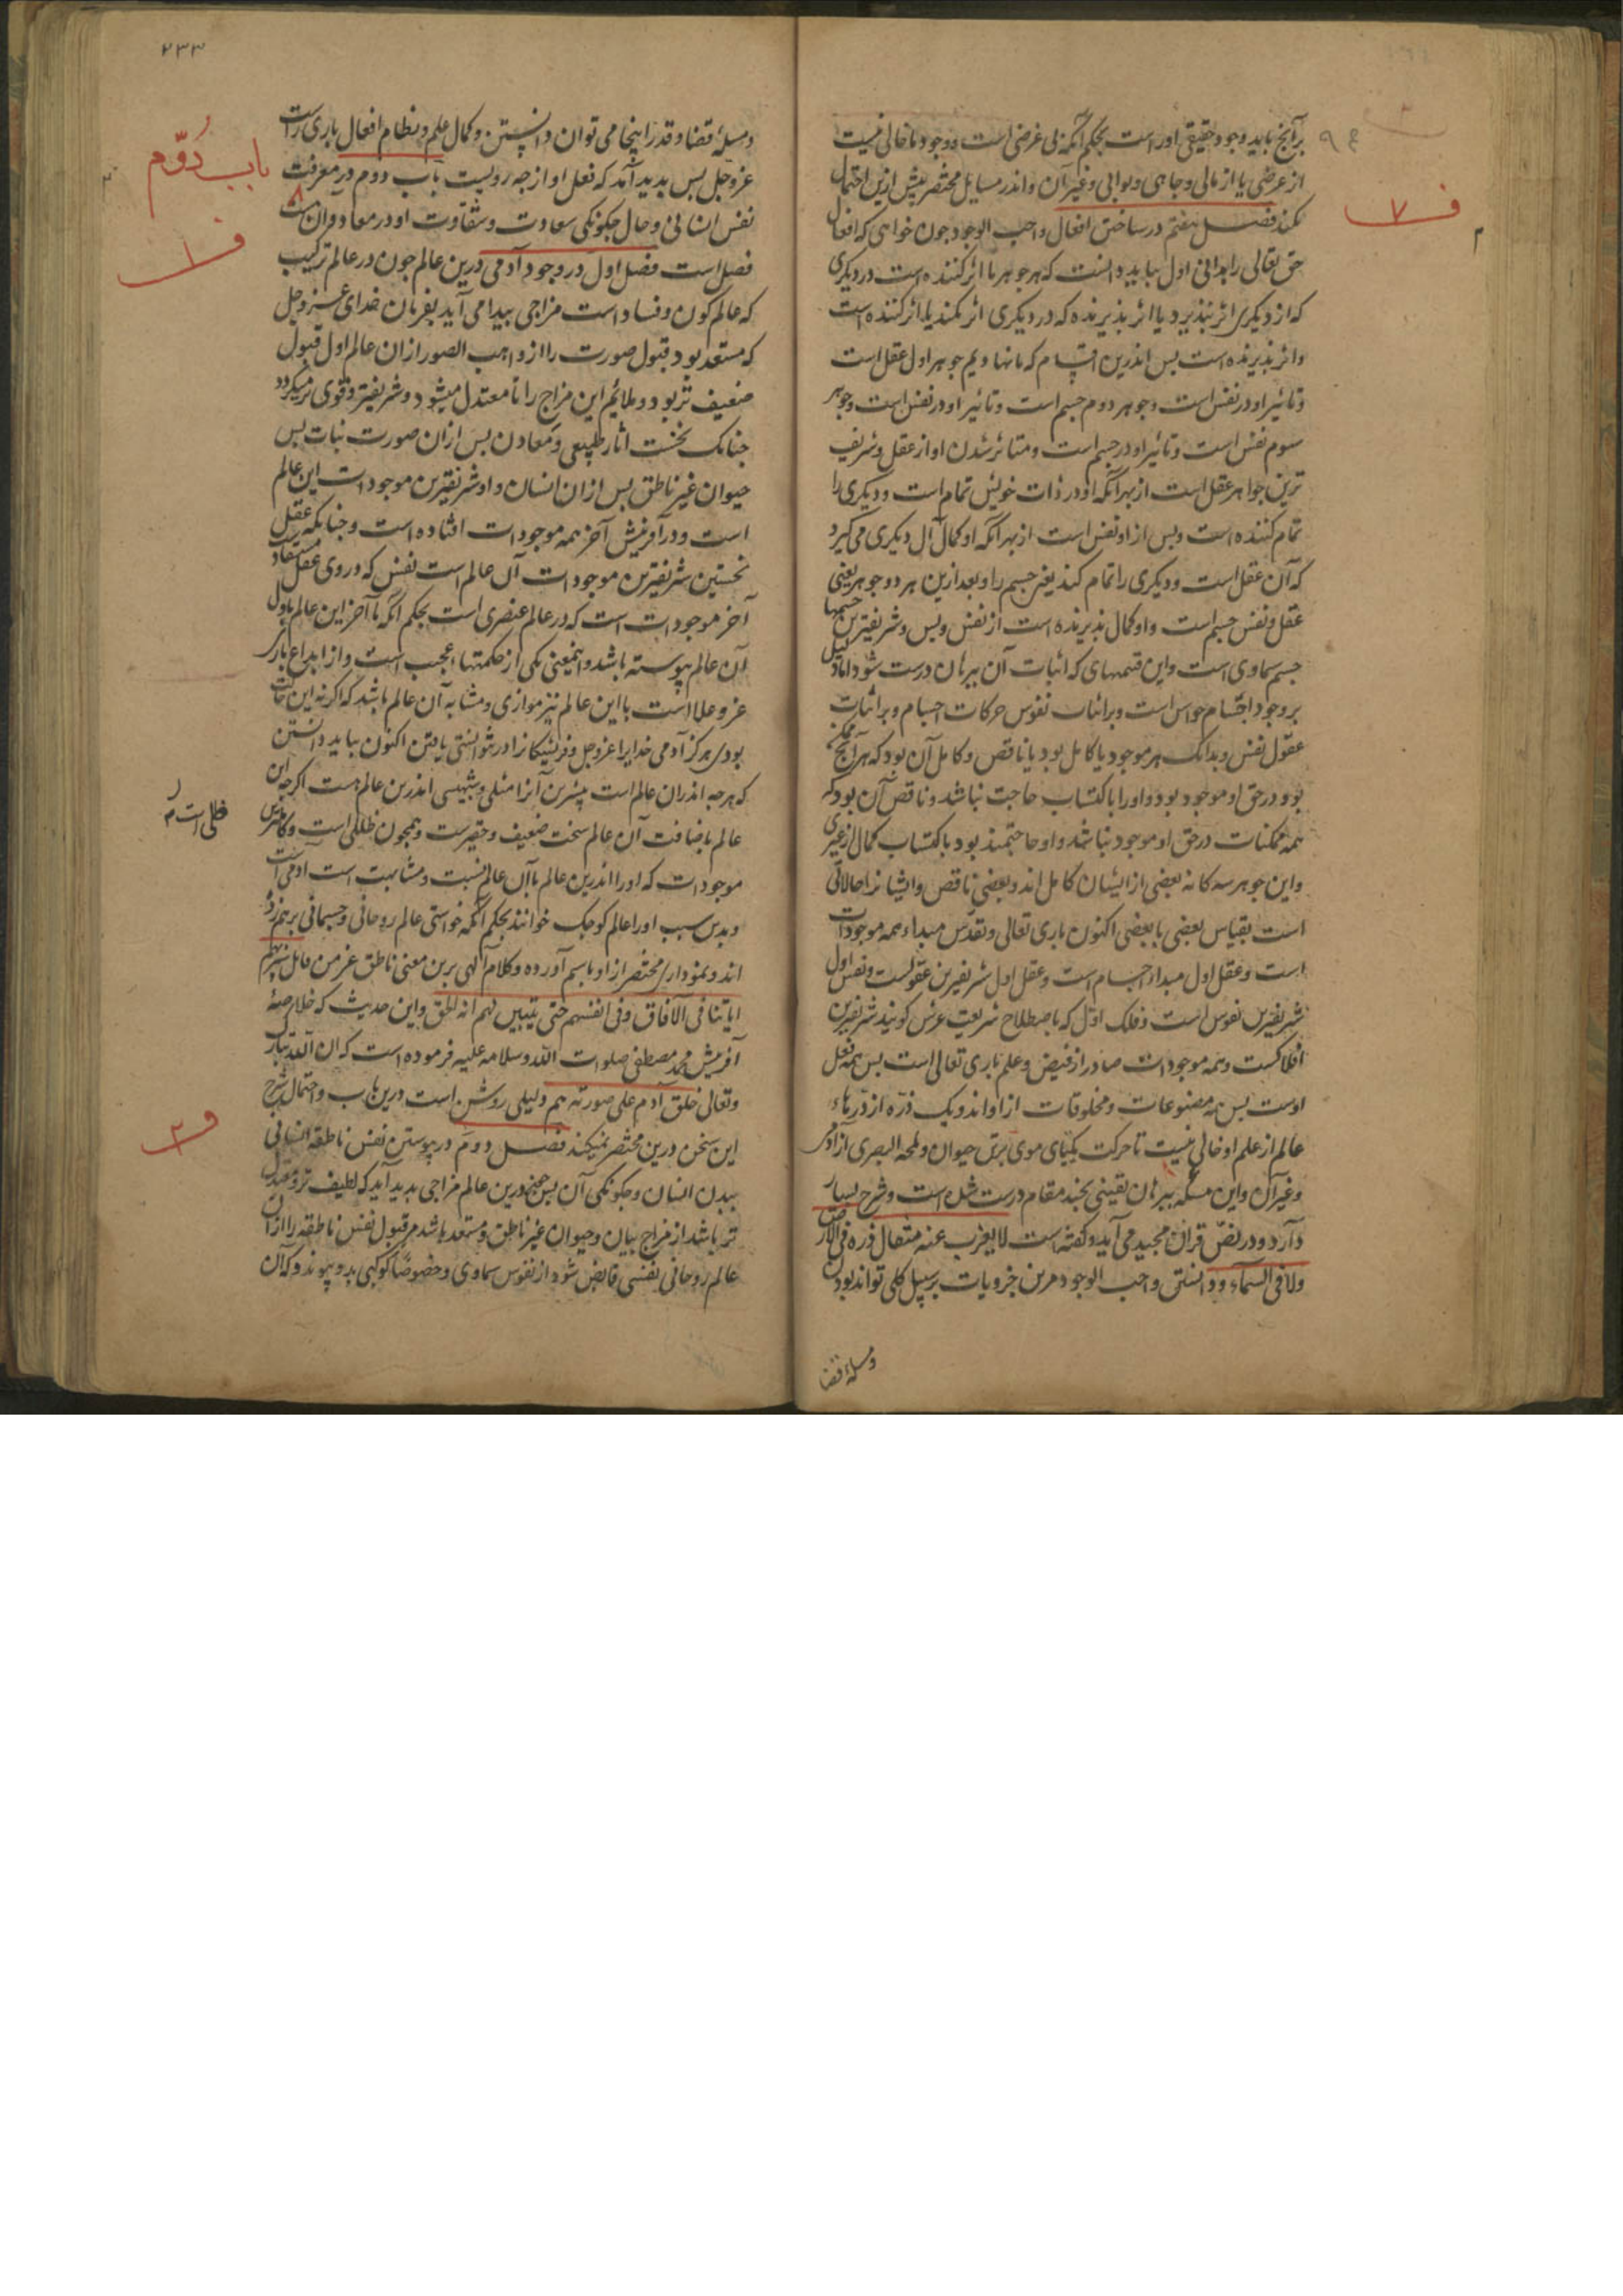 برآنچ باید وجود حقیقی اوراست بحکم آنکه بی غرضی است ووجود ما خالی نیست
از غرضی یا از مالی وجاهی وثوابی وغیرآن واندر مسایل مختصر بیش ازین احتمال
نکند فصل هفتم در ساختن افعال واجب الوجود جون خواهی که افعال
حق تعالی رابدانی اول بباید دانست که هر جوهر ما اثر کننده است در دیکری
که از دیکری اثر نپذیرد یا اثر پذیرنده که در دیکری اثر نکند یا اثر کننده است
واثر پذیرنده است بس اندرین اقسام که مانهادیم جوهر اول عقل است
وتاثیر او در نفس است وجوهر دوم جسم است وتاثیر او در نفس است وجوهر
سوم نفس است وتاثیر او در جسم است ومتاثر شدن او از عقل وشریف
ترین جواهر عقل است از بهر آنکه او در ذات خویش تمام است ودیکری را
تمام کننده است وبس از او نفس است از بهر آنکه او کمال از دیکری می کیرد
که آن عقل است ودیکری را تمام کند یعنی جسم را وبعد ازین هر دو جوهر یعنی
عقل ونفس جسم است واو کمال پذیرنده است از نفس وبس وشریفترین جسمها
جسم سماوی است واین قسمهای که اثبات آن ببرهان درست شود اما دلیل
بر وجود اجسام حواس است وبر اثبات نفوس حرکات اجسام وبر اثبات
عقول نفس وبدانک هر موجود یا کامل بود یا ناقص وکامل آن بود که هر آنچ ممکن
بود در حق او موجود بود واورا باکتساب حاجت نباشد وناقص آن بود که
همه ممکنات در حق او موجود نباشد واو حاجتمند بود باکتساب کمال از غیری
واین جوهر سه کانه بعضی از ایشان کامل اند وبعضی ناقص وایشانرا حالاتی
است بقیاس بعضی با بعضی اکنون باری تعالی وتقدس مبداء همه موجودات
است وعقل اول مبداء اجسام است وعقل اول شریفترین عقولست ونفس اول
شریفترین نفوس است وفلک اول که باصطلاح شریعت عرش کویند شریفترین
افلاکست وهمه موجودات صادر از فیض وعلم باری تعالی است بس همه فعل
اوست بس همه مصنوعات ومخلوقات از او اند ویک ذره از ذرهاء
عالم از علم او خالی نیست تا حرکت یکتای موی برتن حیوان ولمحة البصری از آدمی
وغیر آن واین مسئله ببرهان یقینی بچند مقام درست شده است وشرح بسیار
دارد ودر نص قرآن مجید می آید وکفته است لا یعزب عنه مثقال ذرة فی الارض
ولا فی السماء ودانستن واجب الوجود مر این جزویات بر سبیل کلی تواند بودن
ومسئله قضا
ف ٧
٢٣٣
ومسئله قضا وقدر اینجا می توان دانستن وکمال علم ونظام افعال باری راست
عز وجل بس بدید آمد که فعل او از جه رویست باب دوم در معرفت
نفس انسانی وحال جکونکی سعادت وشقاوت او در معاد وآن ٨
فصل است فصل اول در وجود آدمی درین عالم جون در عالم ترکیب
که عالم کون وفساد است مزاجی بیدا می آید بفرمان خدای عز وجل
که مستعد بود قبول صورت را از واهب الصور از آن عالم اول قبول
ضعیف تر بود وملائم این مزاج را تا معتدل میشود وشریفتر وقوی تر میکردد
جنانک نخست اثار طبیعی ومعادن بس از ان صورت نبات بس
حیوان غیر ناطق بس از ان انسان واو شریفترین موجودات این عالم
است ودر آفرینش آخر همه موجودات افتاده است وجنانکه عقل
نخستین شریفترین موجودات آن عالم است نفس که در وی عقل مستفاد
آخر موجودات است که در عالم عنصری است بحکم آنکه تا آخر این عالم باول
آن عالم پیوسته باشد واینمعنی یکی از حکمتهاء عجیب است واز ابداع باری
عز وعلا است تا این عالم نیز موازی ومشابه آن عالم باشد که اکر نه این
بودی هرکز آدمی خدایرا عز وجل وفرشتیکانرا در نتوانستی یافتن اکنون بباید دانستن
که هر جه اندران عالم است آنرا مثلی وشبهی اندرین عالم هست اکرچه این
عالم باضافت آن عالم سخت ضعیف وحقیرست وهمچون ظللی است وکاملترین
موجودات که او را اندرین عالم باآن عالم نسبت ومشابهت است آدمی است
وبدین سبب اورا عالم کوجک خوانند بحکم آنکه خواستی عالم روحانی وجسمانی برهم زده
اند ونموداری مختصر از او باسم آورده وکلام الهی برین معنی ناطق عز من قائل سنریهم
ایاتنا فی الآفاق وفی انفسهم حتی یتبین لهم انه الحق واین حدیث که خلاصهٔ
آفرینش محمد مصطفی صلوات الله وسلامه علیه فرموده است که ان الله تبارک
وتعالی خلق آدم علی صورته هم دلیلی روشن است درین باب واحتمال شرح
این سخن درین مختصر نمیکند فصل دوم در پیوستن نفس ناطقه انسانی
ببدن انسان وجکونکی آن بس درین عالم مزاجی بدید آید که لطیف تر ومعتدل
تر باشد از مزاج نبات وحیوان غیر ناطق ومستعد باشد مر قبول نفس ناطقه را از آن
عالم روحانی نفسی فایض شود از نفوس سماوی وخصوصا کوکبی بدو پیوندد که آن
باب دوّم
ف ١
ظلی است
ف ٢